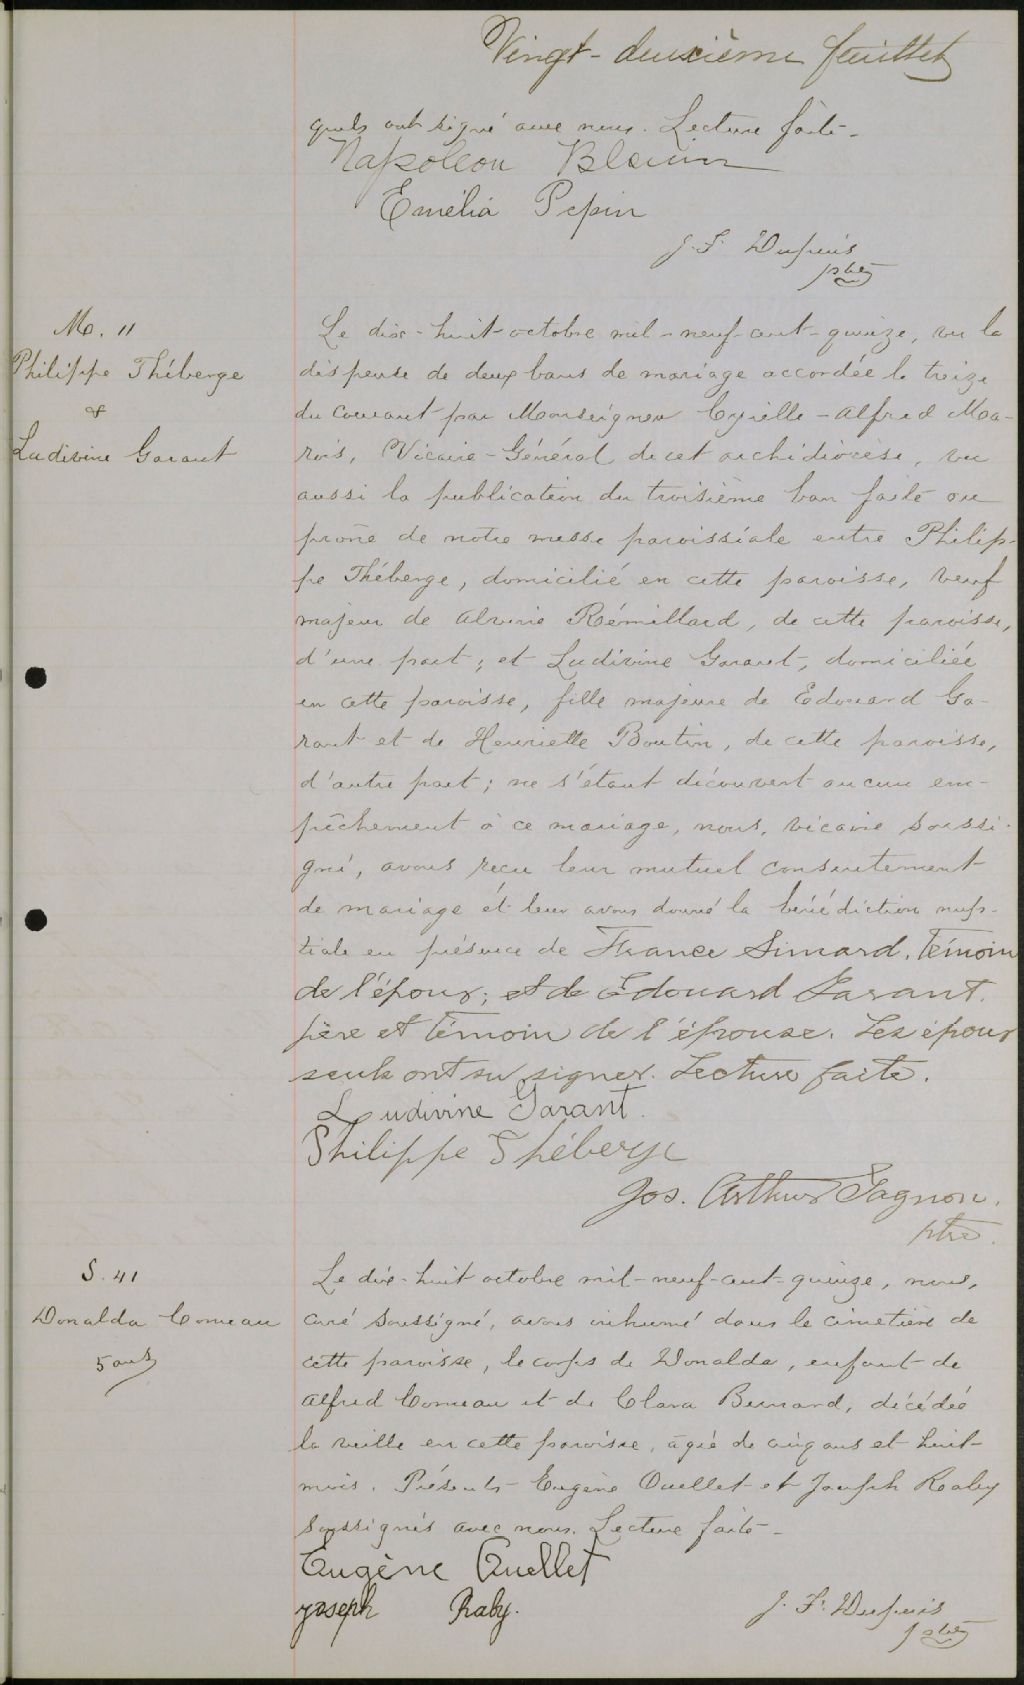 Vingt-deuxième feuillet
quels ont signé avec nous. Lecture faite-
Napoleon Blouin
Emélia Pepin
J. F. Dupuis
ptre
M. 11
Philippe Théberge
&
Ludivine Garant
Le dix-huit octobre mil-neuf-cent-quinze, vu la
dispense de deux bans de mariage accordée le treize
du courant par Monseigneur Cyrille-Alfred Ma-
rois, Vicaire-Général de cet archidiocèse, vu
aussi la publication du troisième ban faite au
prône de notre messe paroissiale entre Philip-
pe Théberge, domicilié en cette paroisse, veuf
majeur de Alvine Rémillard, de cette paroisse,
d'une part; et Ludivine Garant, domiciliée
en cette paroisse, fille majeure de Edouard Ga-
rant et de Henriette Boutin, de cette paroisse,
d'autre part; ne s'étant découvert aucun em-
pêchement à ce mariage, nous, vicaire soussi-
gné, avons reçu leur mutuel consentement
de mariage et leur avons donné la bénédiction nup-
tiale en présence de France Simard, témoin
de l'époux; et de Edouard Garant,
père et témoin de l'épouse. Les époux
seuls ont su signer. Lecture faite.
Ludivine Garant.
Philippe Théberge
Jos. Arthur Gagnon.
ptre.
S. 41
Donalda Comeau
5 ans
Le dix-huit octobre mil-neuf-cent-quinze, nous,
curé soussigné, avons inhumé dans le cimetière de
cette paroisse, le corps de Donalda, enfant de
Alfred Comeau et de Clara Bernard, décédée
la veille en cette paroisse, âgée de cinq ans et huit
mois. Présents Eugène Ouellet et Joseph Raby
soussignés avec nous. Lecture faite-
Eugène Ouellet
Joseph Raby.
J. F. Dupuis
ptre